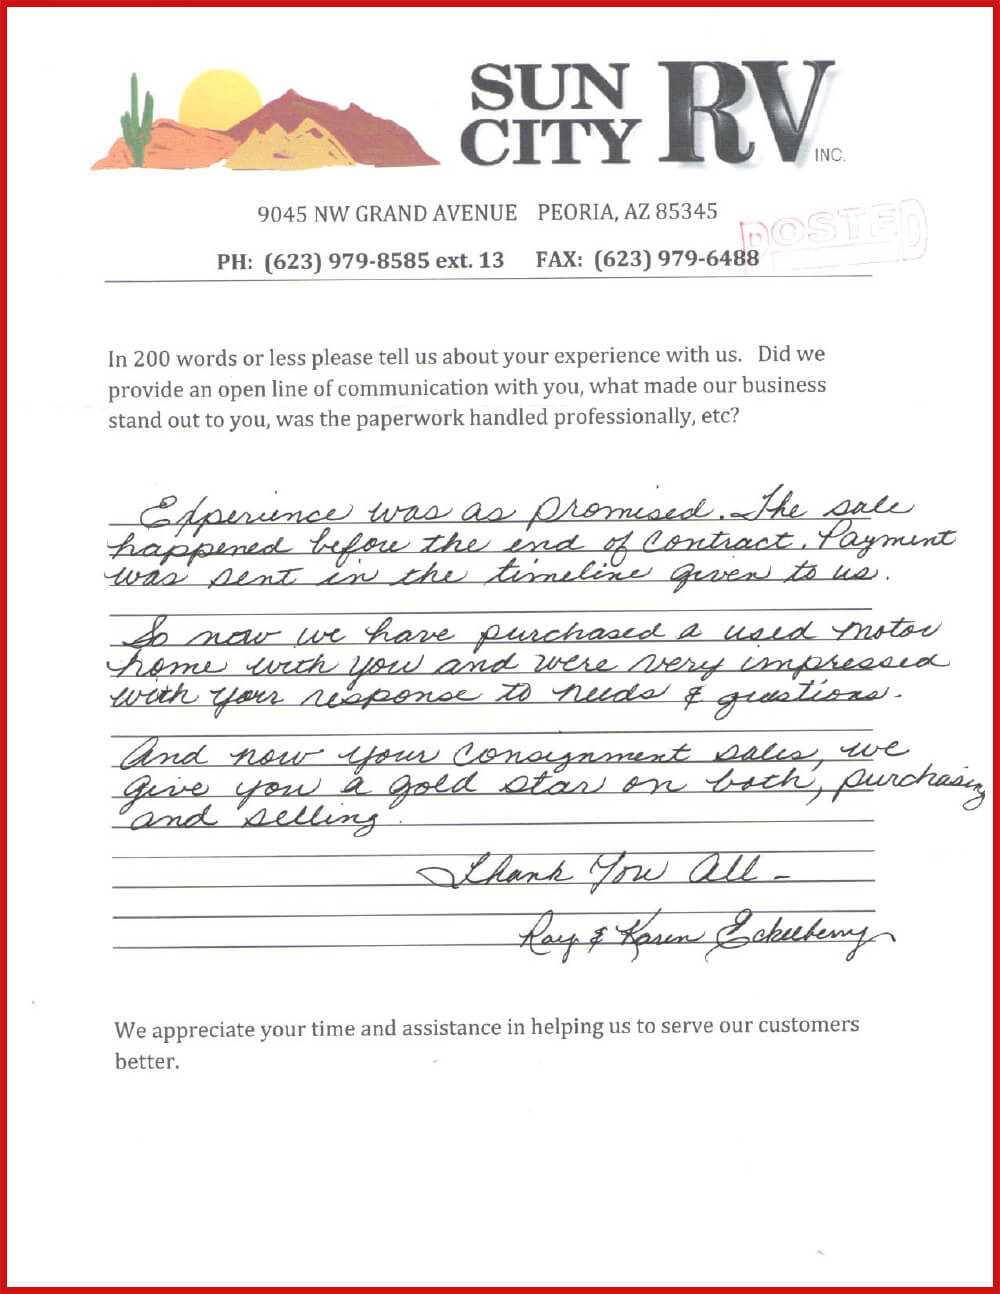 SUN CITY RV INC.
9045 NW GRAND AVENUE PEORIA, AZ 85345
POSTED
PH: (623) 979-8585 ext. 13 FAX: (623) 979-6488
In 200 words or less please tell us about your experience with us. Did we
provide an open line of communication with you, what made our business
stand out to you, was the paperwork handled professionally, etc?
Experience was as promised. The sale
happened before the end of contract. Payment
was sent in the timeline given to us.
So now we have purchased a used motor
home with you and were very impressed
with your response to needs & questions.
And now your consignment sales, we
give you a gold star on both, purchasing
and selling.
Thank You All -
Ray & Karen Eckelberry
We appreciate your time and assistance in helping us to serve our customers
better.